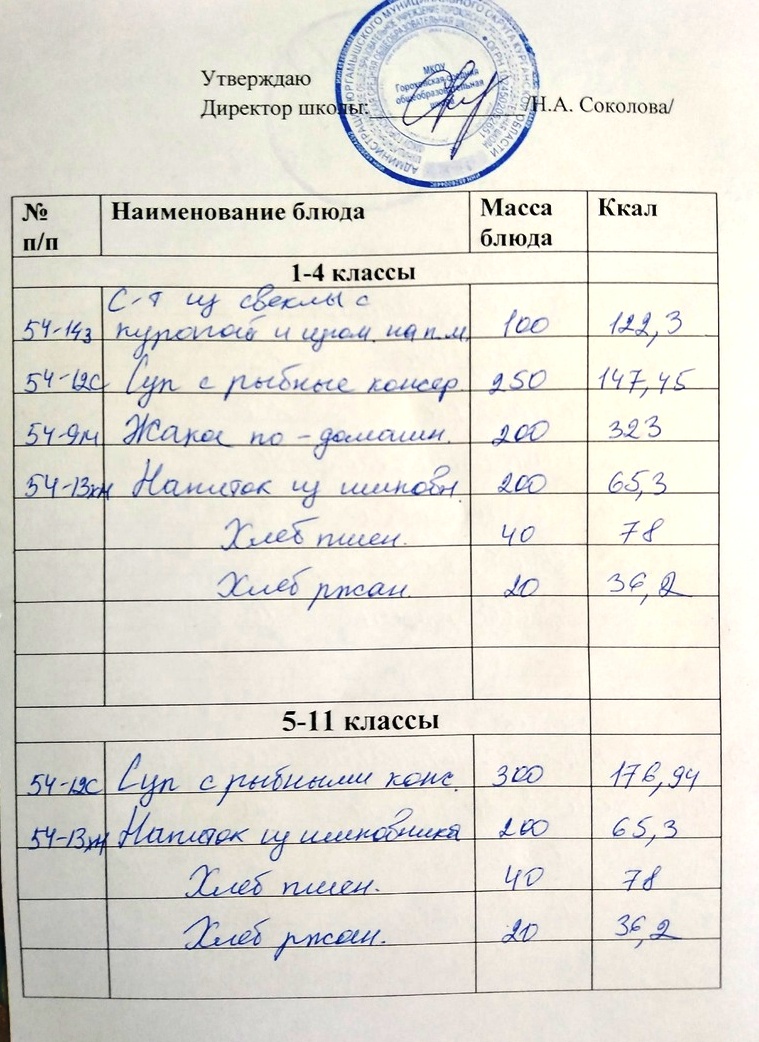 Утверждаю
Директор школы: /Н.А. Соколова/
МКОУ
Гороховская средняя
общеобразовательная
школа
№ п/п Наименование блюда Масса блюда Ккал
1-4 классы
С-т из свеклы с
54-14з курагой и изюм. на п.м. 100 122,3
54-12с Суп с рыбные консер. 250 147,45
54-9м Жакое по-домашн. 200 323
54-13хн Напиток из шиповн. 200 65,3
Хлеб пшен. 40 78
Хлеб ржан. 20 36,2
5-11 классы
54-12с Суп с рыбными конс. 300 176,94
54-13хн Напиток из шиповника 200 65,3
Хлеб пшен. 40 78
Хлеб ржан. 20 36,2